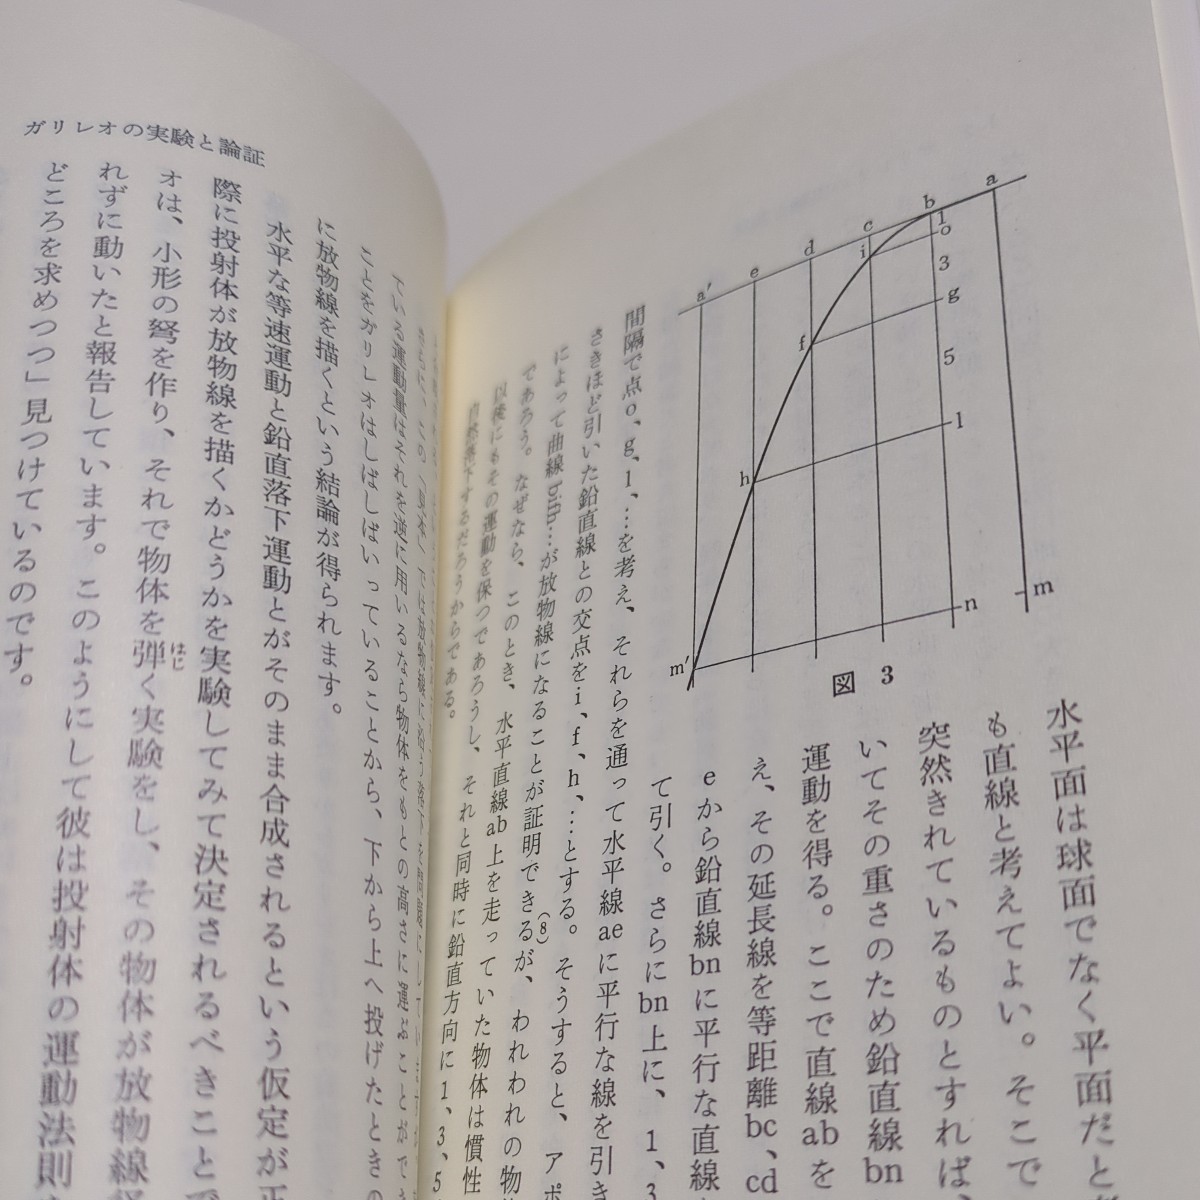 a
b
c
d
e
a'
1
o
i
3
g
f
5
l
h
n
m
m'
図 3
水平面は球面でなく平面だと
も直線と考えてよい。そこで
突然きれているものとすれば、
いてその重さのため鉛直線bn
運動を得る。ここで直線abを
え、その延長線を等距離bc、cd
eから鉛直線bnに平行な直線
て引く。さらにbn上に、1、3
間隔で点o、g、l、…を考え、それらを通って水平線aeに平行な線を引き
さきほど引いた鉛直線との交点をi、f、h、…とする。そうすると、アポ
によって曲線bifh…が放物線になることが証明できるが、われわれの物
(8)
であろう。なぜなら、このとき、水平直線ab上を走っていた物体は慣性
以後にもその運動を保つであろうし、それと同時に鉛直方向に1、3、5
自然落下するだろうからである。
ガリレオの実験と論証
さらに、この「見本」では放物線に沿う落下を問題にしていますが、
ている運動量はそれを逆に用いるなら物体をもとの高さに運ぶことができ
ことをガリレオはしばしばいっていることから、下から上へ投げたときの
に放物線を描くという結論が得られます。
水平な等速運動と鉛直落下運動とがそのまま合成されるという仮定が正
際に投射体が放物線を描くかどうかを実験してみて決定されるべきことで
オは、小形の弩を作り、それで物体を弾く実験をし、その物体が放物線
はじ
れずに動いたと報告しています。このようにして彼は投射体の運動法則
どころを求めつつ」見つけているのです。